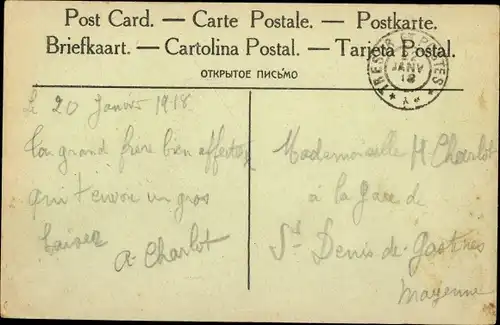 Post Card. — Carte Postale. — Postkarte.
Briefkaart. — Cartolina Postal. — Tarjeta Postal.
ОТКРЫТОЕ ПИСЬМО
TRESOR ET POSTES
JANV
18
Le 20 Janvier 1918
Ton grand frère bien affectueux
qui t'envoie un gros
baiser
A. Charlot
Mademoiselle H Charlot
à la Gare de
St Denis de Gastines
Mayenne